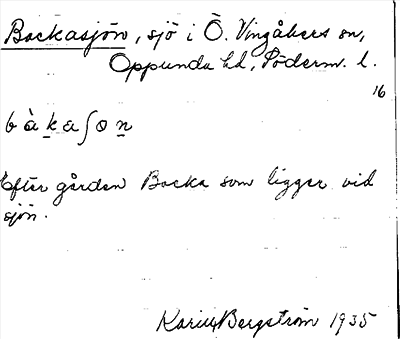 Backasjön, sjö i Ö. Vingåkers sn,
Oppunda hd, Söderm. l.
16
bàkaʃon
Efter gården Backa som ligger vid
sjön.
Bergström 1935